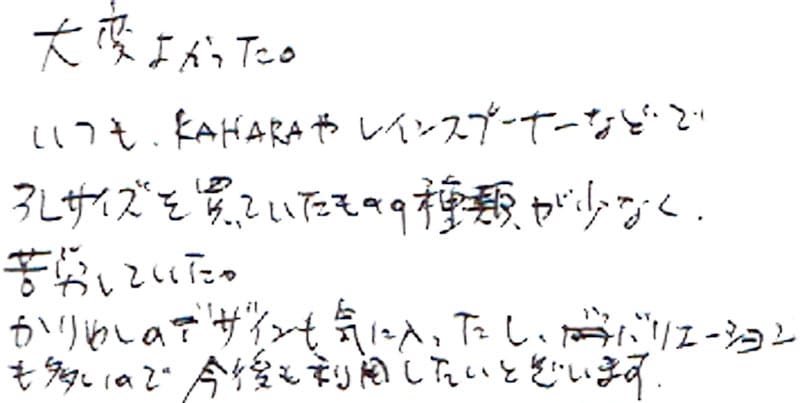 大変よかった。
いつも、KAHARAや レインスプーナーなどで
3Lサイズを買っていたものの種類が少なく、
苦労していた。
かりゆしのデザインも気に入ったし、バリエーション
も多いので今後も利用したいと思います。